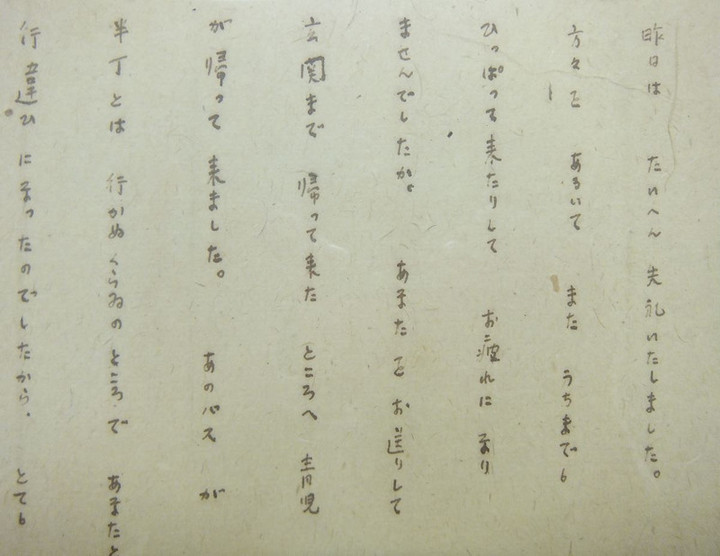 昨日は たいへん 失礼いたしました。
方々を あるいて また うちまでも
ひっぱって来たりして お疲れに なり
ませんでしたか。 あなたを お送りして
玄関まで 帰って来た ところへ 青児
が帰って 来ました。 あのバス が
半丁とは 行かぬくらゐの ところで あなたと
行違ひになったのでしたから、 とても